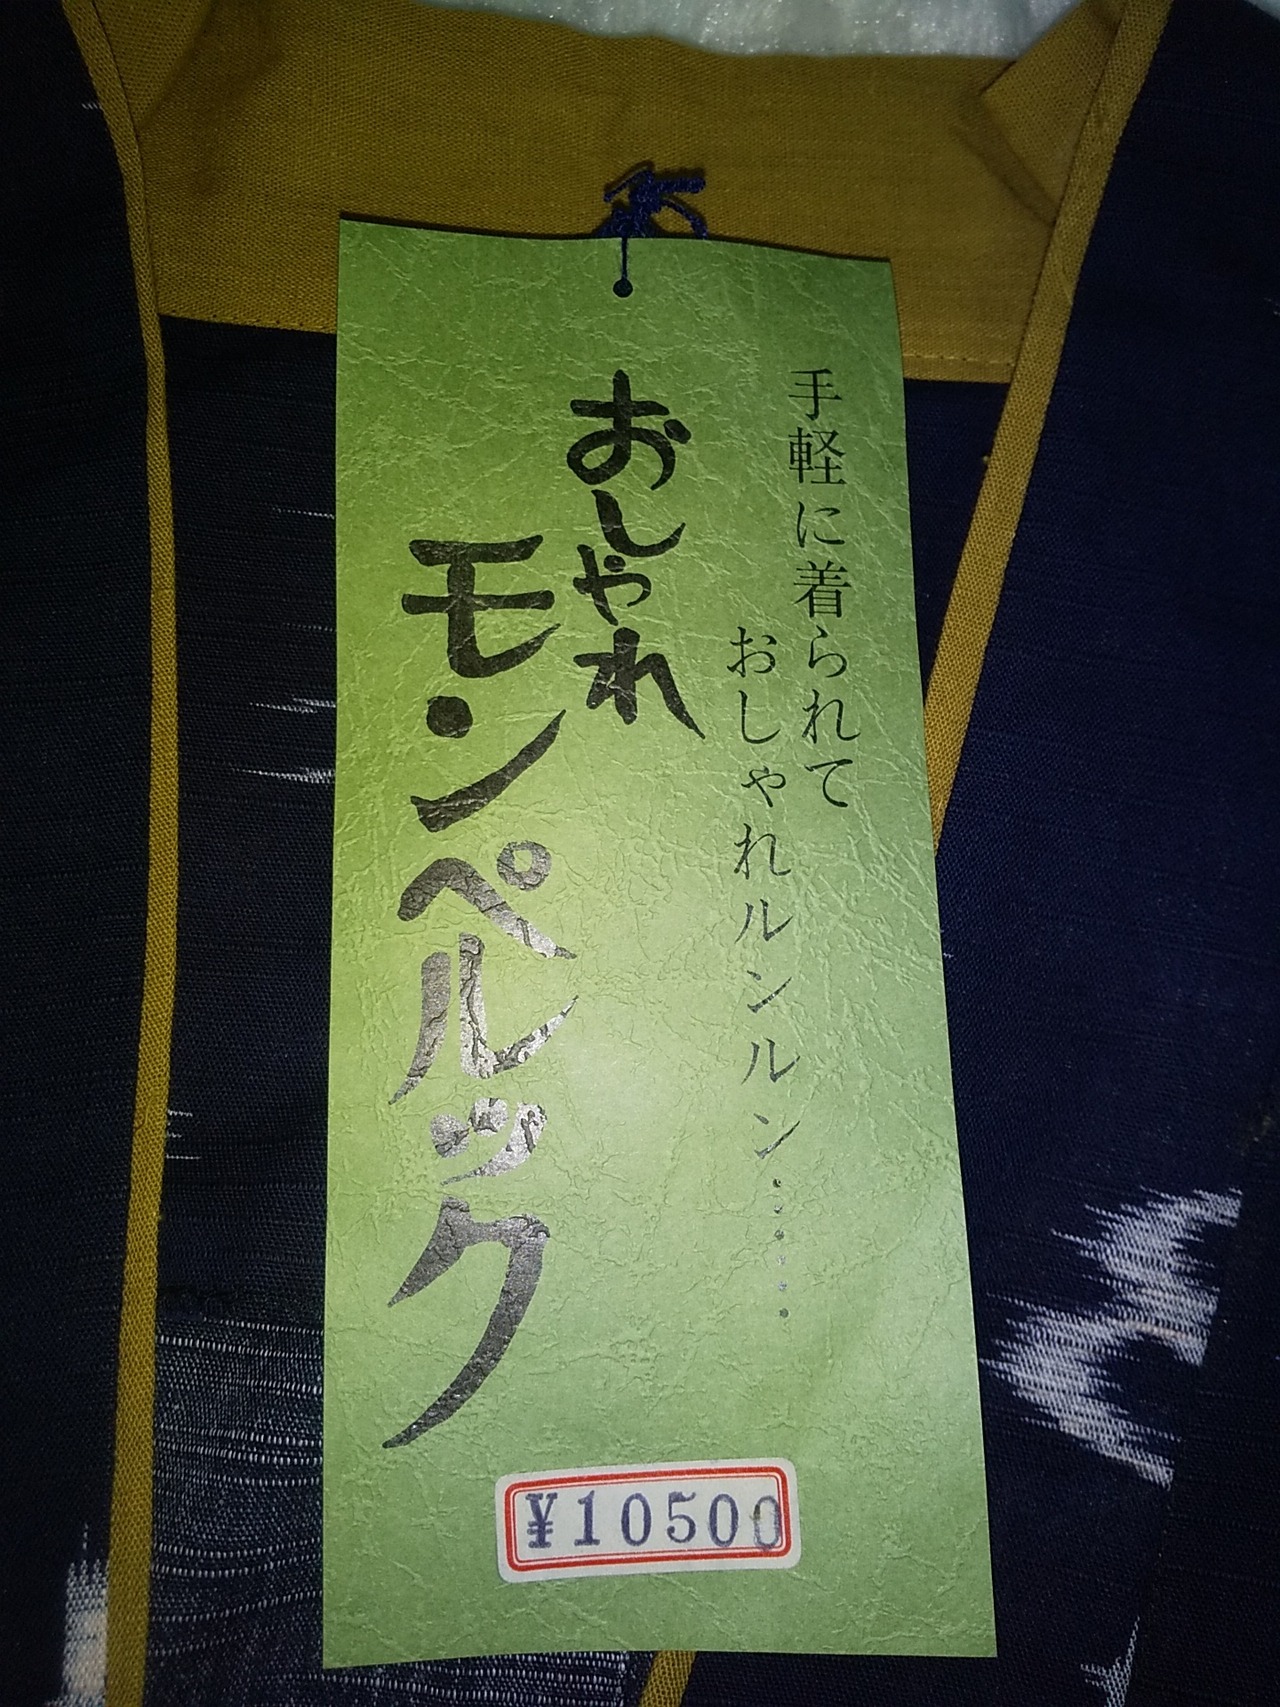 手軽に着られて
おしゃれルンルン……
おしゃれ
モンペルック
¥10500